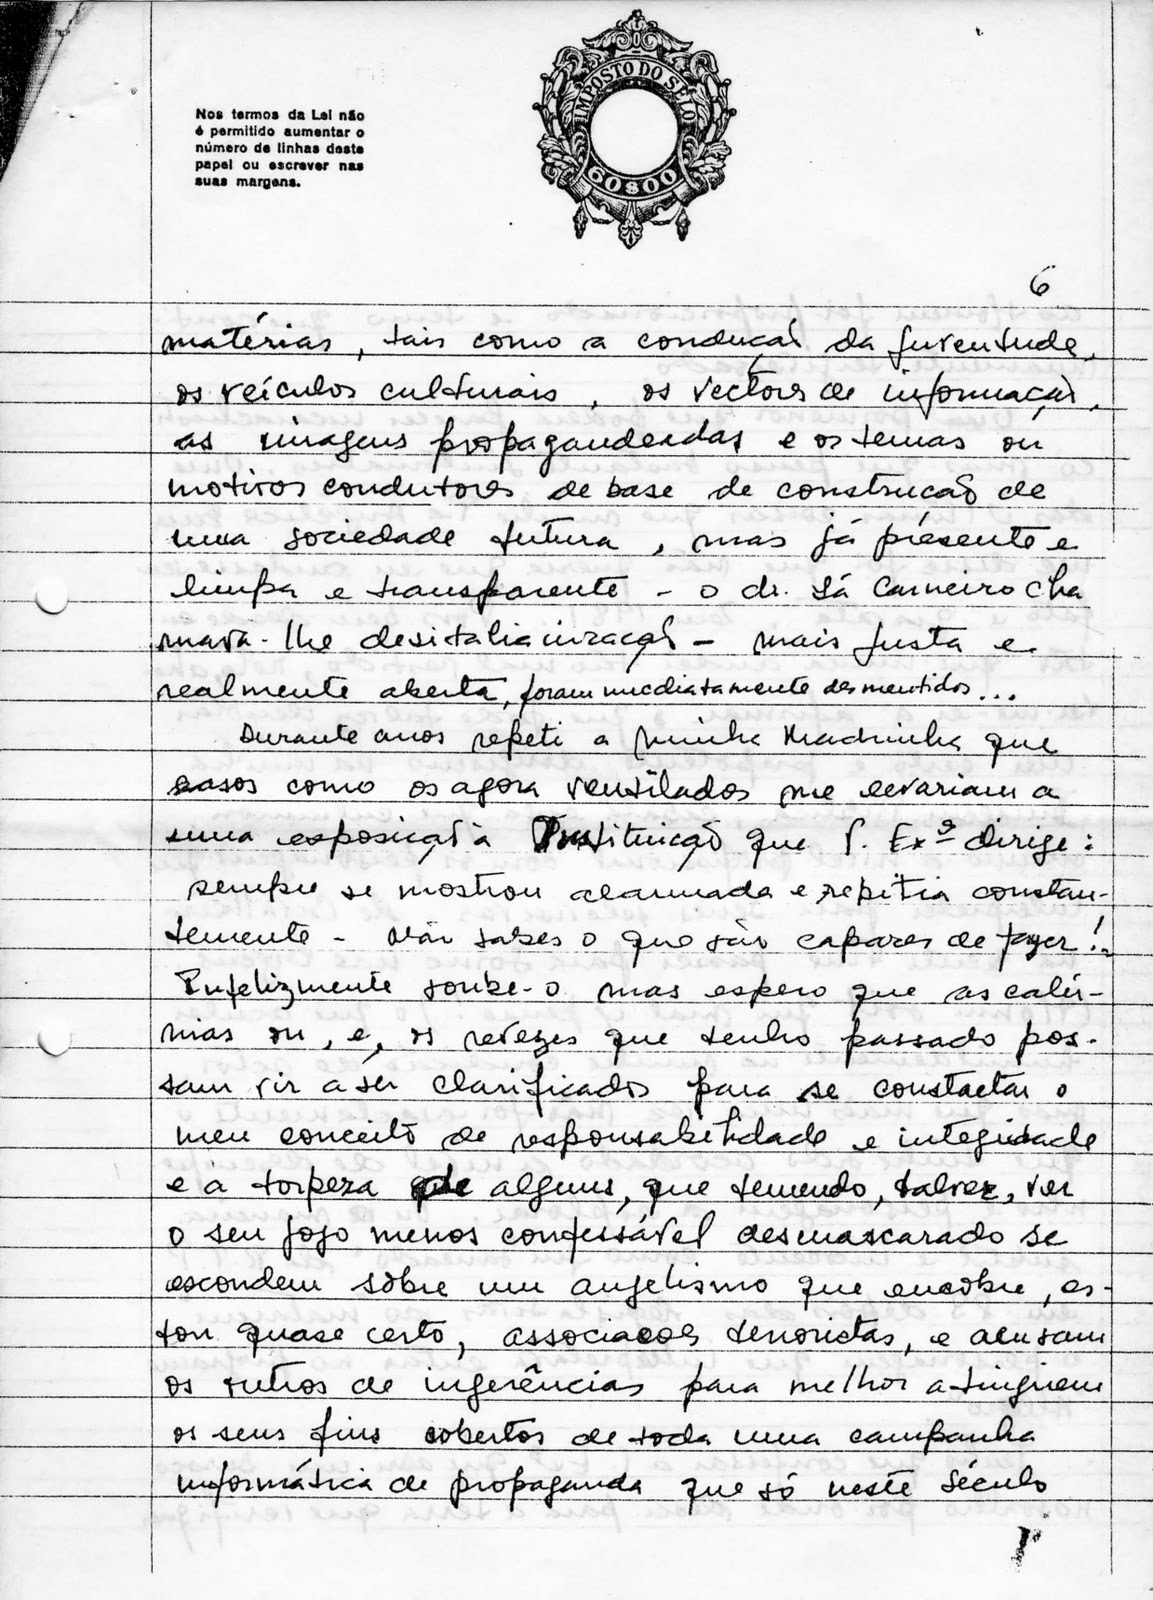 Nos termos da Lei não
é permitido aumentar o
número de linhas deste
papel ou escrever nas
suas margens.
IMPOSTO DO SELO
60$00
6
matérias, tais como a condução da juventude,
os veículos culturais, os vectores de informação,
as imagens propagandeadas e os temas ou
motivos condutores de base de construção de
uma sociedade futura, mas já presente e
limpa e transparente - o dr. Sá Carneiro cha
mava-lhe desitalianização - mais justa e
realmente aberta, foram imediatamente desmentidos...
Durante anos repeti a minha Madrinha que
casos como os agora ventilados me levariam a
uma exposição à Instituição que V. Exª dirige:
sempre se mostrou alarmada e repetia constan-
temente - Não sabes o que são capazes de fazer!..
Infelizmente soube-o mas espero que as calú-
nias ou, e, os revezes que tenho passado pos-
sam vir a ser clarificados para se constactar o
meu conceito de responsabilidade e integridade
e a torpeza de alguns, que temendo, talvez, ver
o seu jogo menos confessável desmascarado se
escondem sôbre um angelismo que encobre, es-
tou quase certo, associacoes terroristas, e acusam
os outros de ingerências para melhor atingirem
os seus fins cobertos de toda uma campanha
informática de propaganda que só neste século